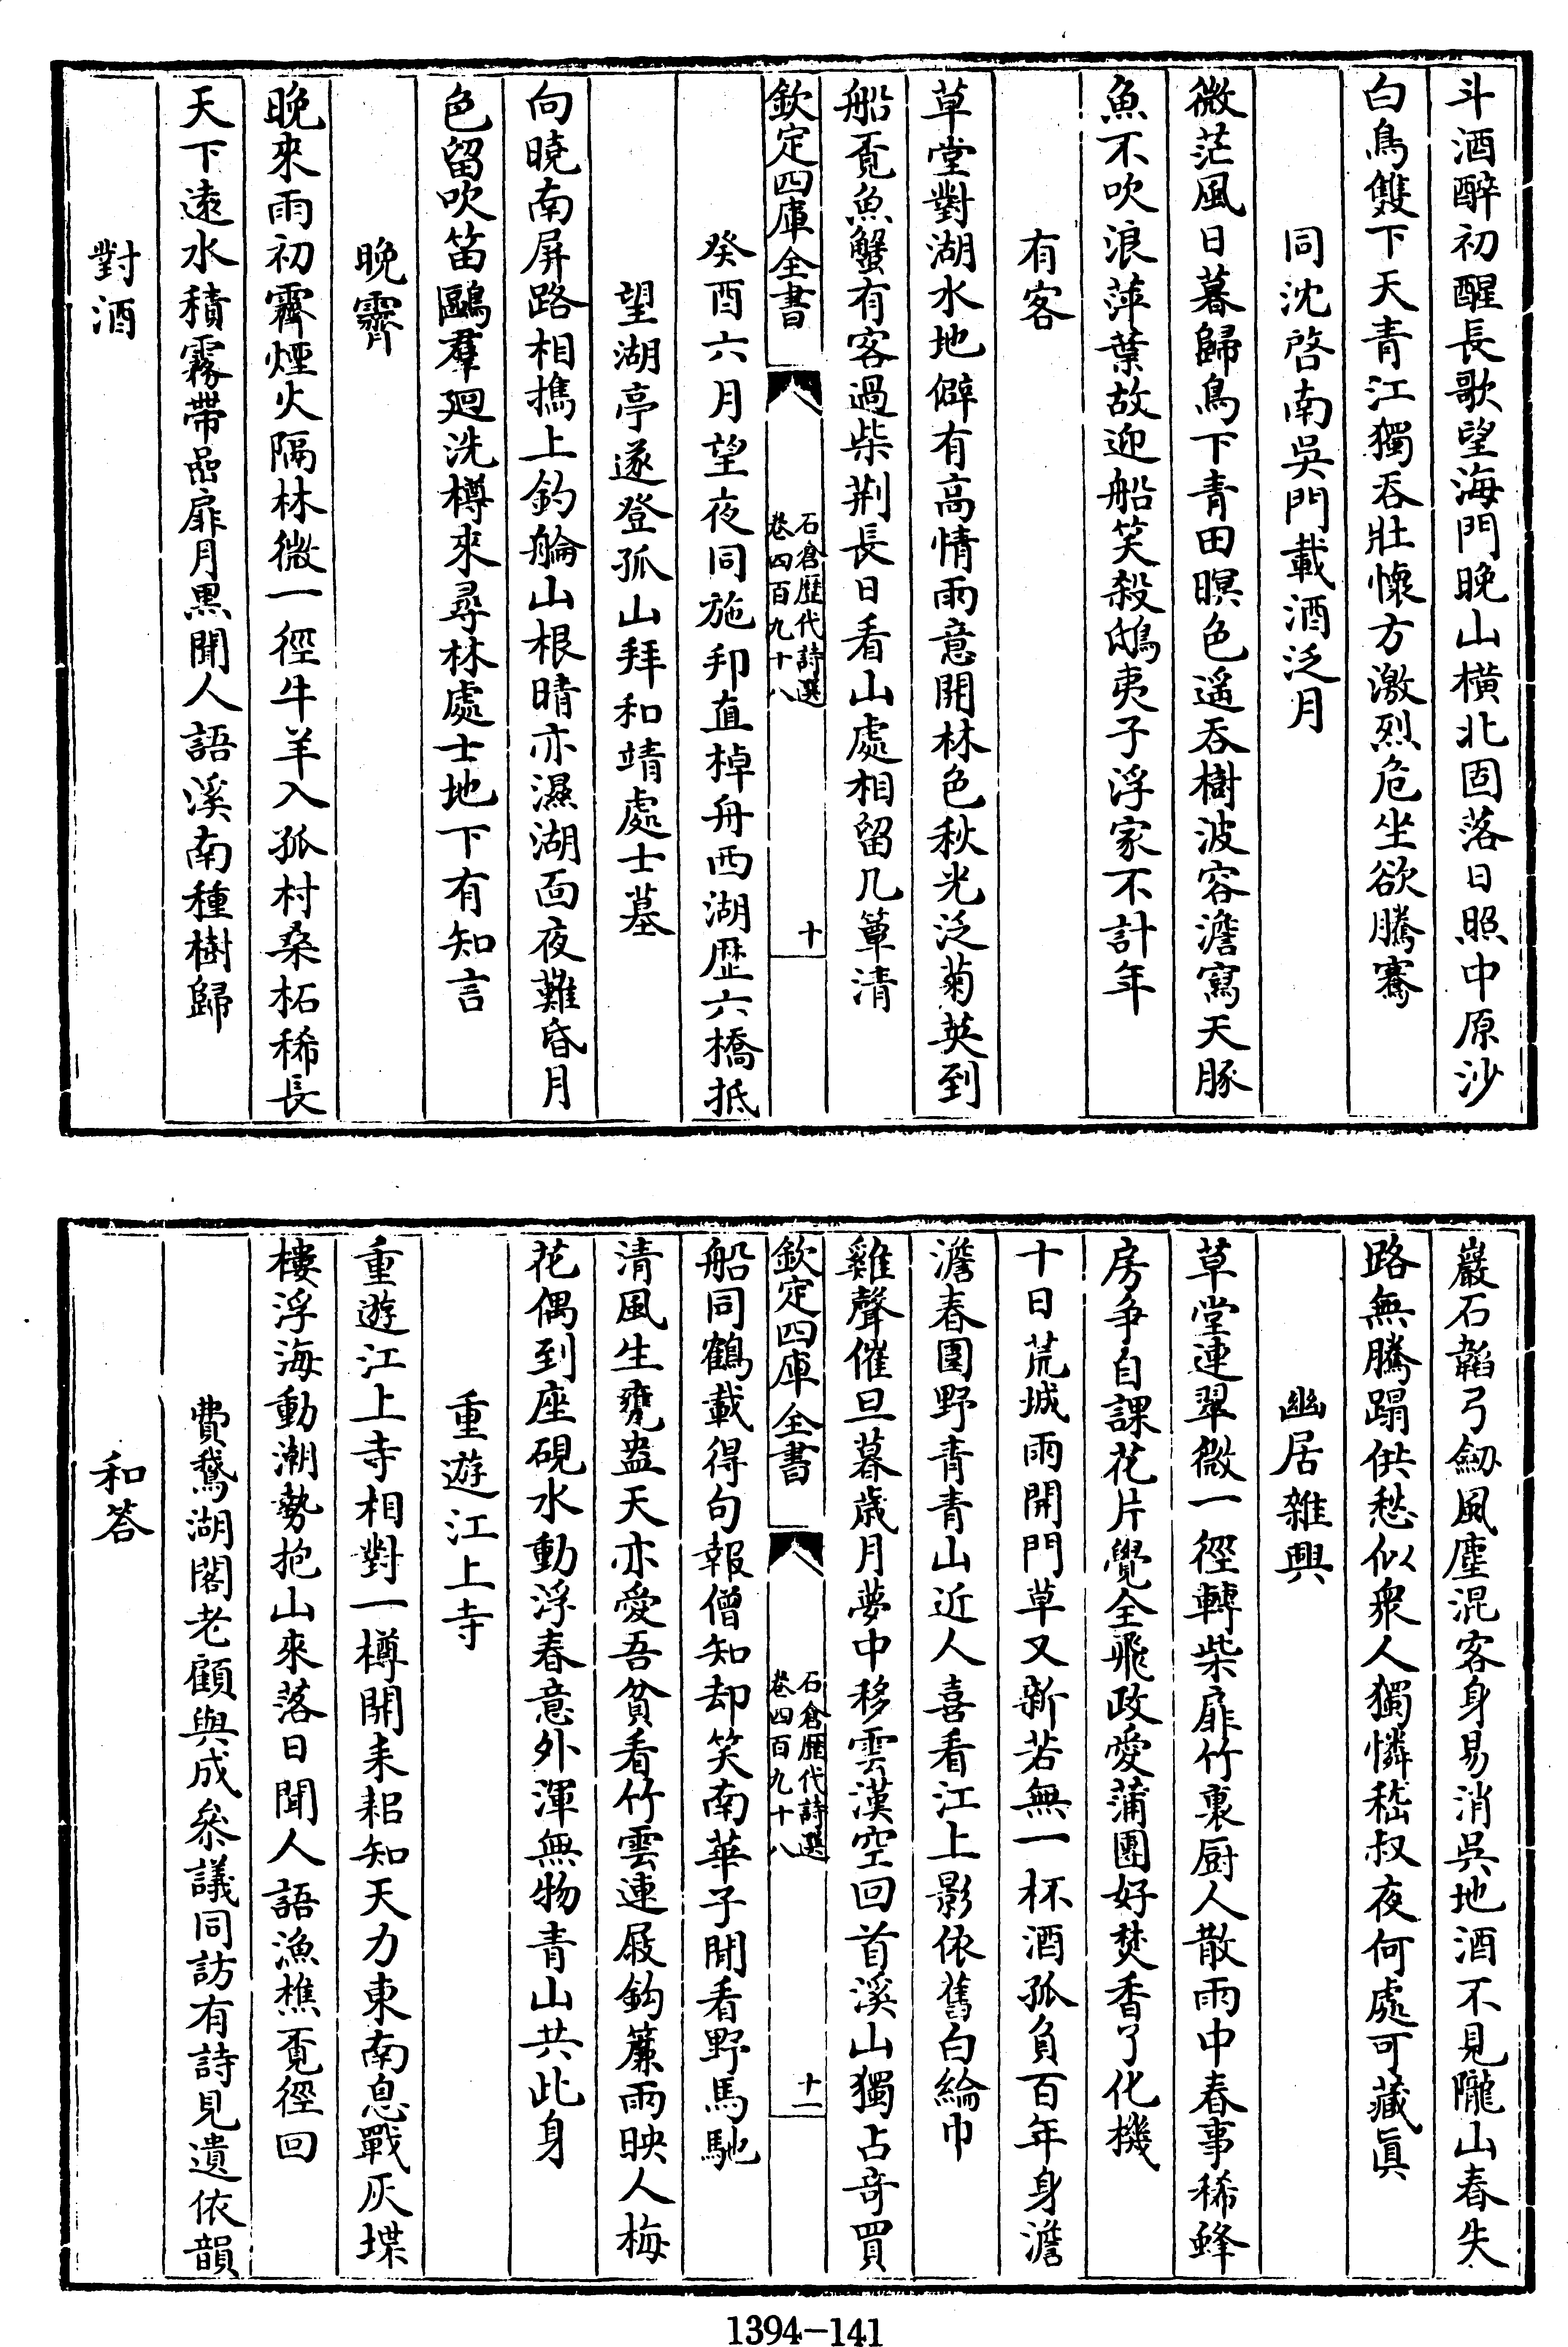 斗酒醉初醒長歌望海門晚山横北固落日照中原沙
白鳥雙下天青江獨吞壯懷方激烈危坐欲騰騫
同沈啓南吳門載酒泛月
微茫風日暮歸鳥下青田暝色遥吞樹波容澹寫天豚
魚不吹浪萍葉故迎船笑殺鴟夷子浮家不計年
有客
草堂對湖水地僻有高情雨意開林色秋光泛菊英到
船覔魚蟹有客過柴荆長日看山處相留几簟清
欽定四庫全書
石倉歴代詩選
卷四百九十八
十
癸酉六月望夜同施邦直棹舟西湖歴六橋抵
望湖亭遂登孤山拜和靖處士墓
向曉南屏路相擕上釣艑山根晴亦濕湖面夜難昏月
色留吹笛鷗羣廻洗樽來尋林處士地下有知言
晚霽
晚來雨初霽煙火隔林微一徑牛羊入孤村桑柘稀長
天下逺水積霧帶嵒扉月黒聞人語溪南種樹歸
對酒
巖石韜弓劒風塵混客身易消吳地酒不見隴山春失
路無騰蹋供愁似衆人獨憐嵇叔夜何處可藏眞
幽居雜興
草堂連翠微一徑轉柴扉竹裏厨人散雨中春事稀蜂
房爭自課花片覺全飛政愛蒲團好焚香了化機
十日荒城雨開門草又新若無一杯酒孤負百年身澹
澹春園野青青山近人喜看江上影依舊白綸巾
雞聲催旦暮歳月夢中移雲漢空回首溪山獨占奇買
欽定四庫全書
石倉歴代詩選
卷四百九十八
十一
船同鶴載得句報僧知却笑南華子閒看野馬馳
清風生甕盎天亦愛吾貧看竹雲連屐鈎簾雨映人梅
花偶到座硯水動浮春意外渾無物青山共此身
重遊江上寺
重遊江上寺相對一樽開耒耜知天力東南息戰灰堞
樓浮海動潮勢抱山來落日聞人語漁樵覔徑回
費鵞湖閣老顧與成叅議同訪有詩見遺依韻
和答
1394-141